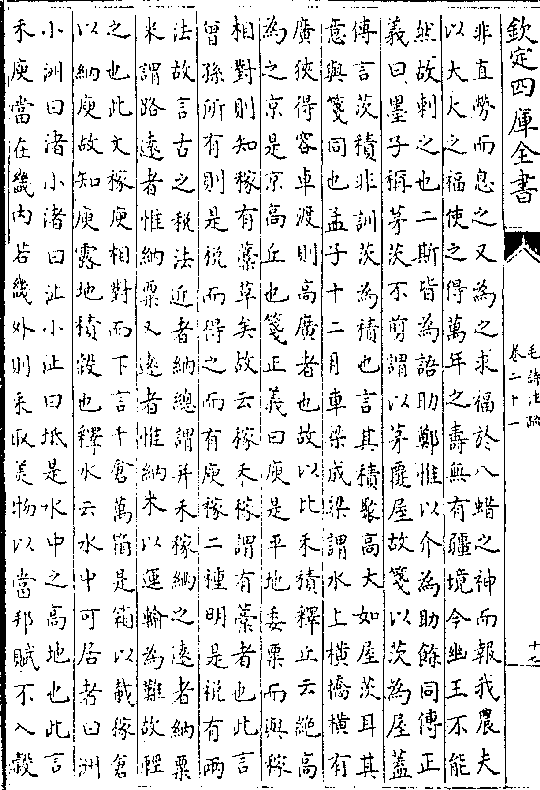 欽定四庫全書
毛詩注疏
卷二十一
非直勞而息之又為之求福於八蜡之神而報我農夫
以大大之福使之得萬年之壽無有疆境今幽王不能
然故刺之也二斯皆為語助鄭惟以介為助餘同傳正
義曰墨子稱茅茨不剪謂以茅覆屋故箋以茨為屋蓋
傳言茨積非訓茨為積也言其積聚高大如屋茨耳其
意與箋同也孟子十二月車梁成梁謂水上橫橋橫有
廣狹得容車渡則高廣者也故以比禾積釋丘云絶高
為之京是京高丘也箋正義曰庾是平地委粟而與稼
相對則知稼有藁草矣故云稼禾稼謂有藁者也此言
曾孫所有則是稅而得之而有庾稼二種明是稅有兩
法故言古之稅法近者納總謂并禾稼納之遠者納粟
米謂路遠者惟納粟又遠者惟納米以運輸為難故輕
之也此文稼庾相對而下言千倉萬箱是箱以載稼倉
以納庾故知庾露地積穀也釋水云水中可居者曰洲
小洲曰渚小渚曰沚小沚曰坻是水中之高地也此言
禾庾當在畿内若畿外則采取美物以當邦賦不入穀